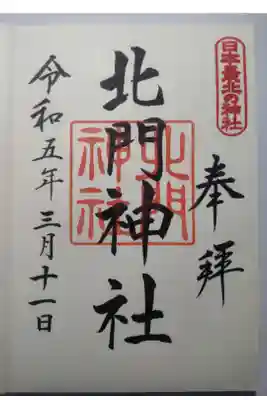 日本最北の神社
奉拝
北門神社
北門
神社
令和五年三月十一日